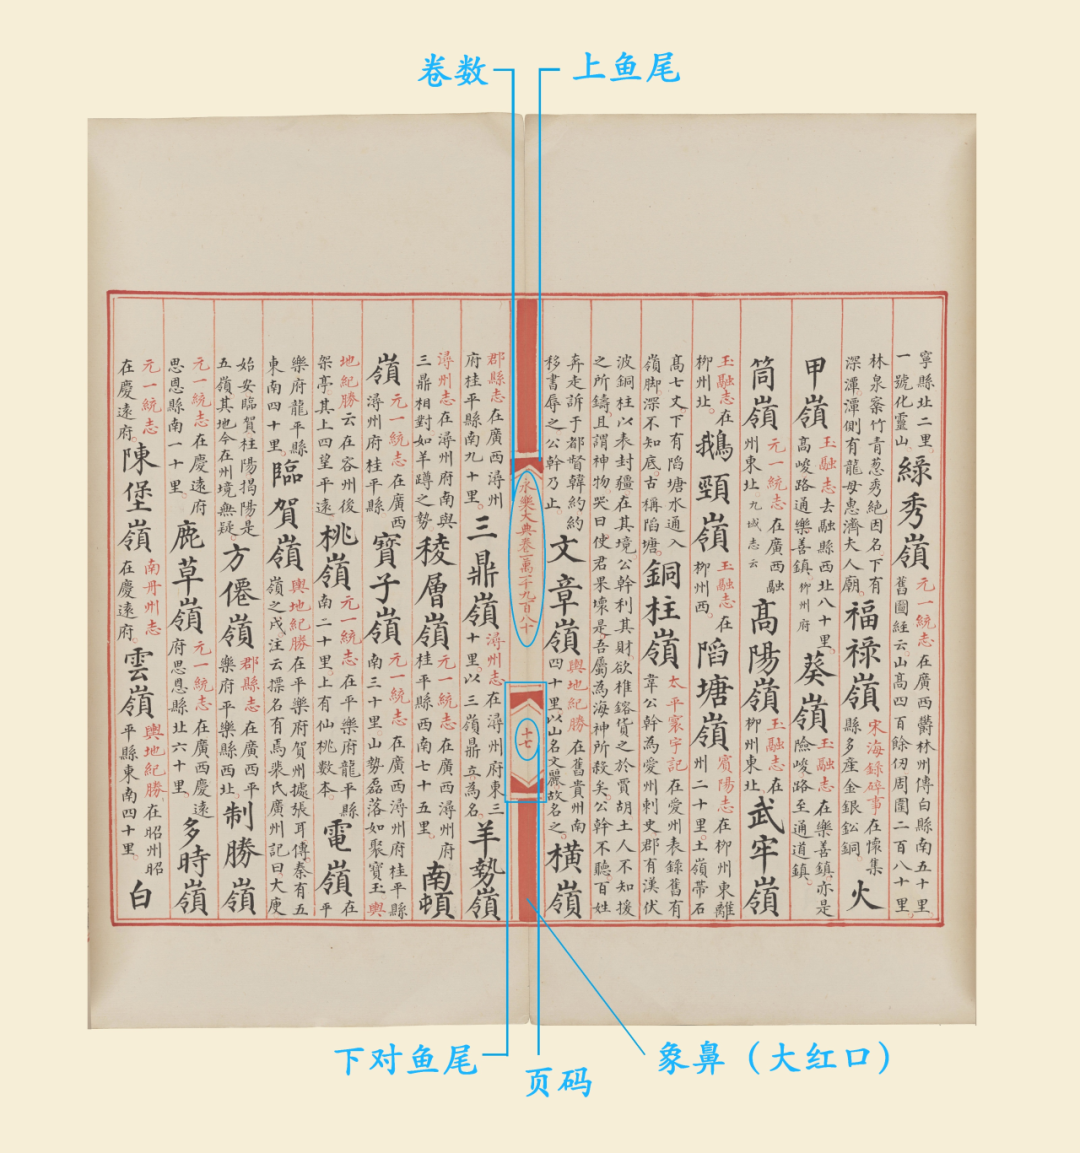 卷数
上鱼尾
寧縣址二里。一號化靈山。緑秀嶺元一統志在廣西欝林州傳白縣南五十里。舊圖經云山髙四百餘仞周圍二百八十里。
林泉宻竹青葱秀絶因名。下有深潭。潭側有龍母惠濟夫人廟。福禄嶺宋海録碎事在懷集縣多産金銀鈆銅。火
甲嶺玉融志去融縣西址八十里。髙峻路通樂善鎮柳州府葵嶺玉融志在樂善鎮亦是險峻路至通道鎮。
筒嶺元一統志在廣西融州東址。九域志云髙陽嶺玉融志在柳州東址。武牢嶺
玉融志在柳州址。鵝頸嶺玉融志在柳州西。陷塘嶺賓陽志在柳州東離州二十里。土嶺帶石
髙七丈下有陷塘水通入嶺脚。深不知底古稱陷塘。銅柱嶺太平寰宇記在愛州表録舊有韋公幹為愛州刺史郡有漢伏
波銅柱以表封疆在其境公幹利其財欲椎鎔貨之於賈胡土人不知援之所鑄。且謂神物。哭曰。使君果壞是。吾屬為海神所殺矣。公幹不聽百姓
奔走訴于都督韓約約移書辱之公幹乃止。文章嶺輿地紀勝在舊貴州南四十里。以山名文麗故名之。橫嶺
永樂大典卷一萬一千九百八十
十七
郡縣志在廣西潯州府桂平縣南九十里。三鼎嶺潯州志在潯州府東三十里以三嶺鼎立為名。羊勢嶺
潯州志在潯州府南與三鼎相對如羊蹲之勢稜層嶺元一統志在廣西潯州府桂平縣西南七十五里。南頓
嶺元一統志在廣西潯州府桂平縣寳子嶺元一統志在廣西潯州府桂平縣南三十里。山勢磊落如聚寳玉輿
地紀勝云在容州後架亭。其上四望平遠桃嶺元一統志在平樂府龍平縣南二十里。上有仙桃數本。電嶺在平
樂府龍平縣東南四十里。臨賀嶺輿地紀勝在平樂府賀州攄張耳傳秦有五嶺之戍。注云摽名有焉裴氏廣州記曰大庾
始安臨賀桂陽揭陽是五嶺其地今在州境無疑。方僊嶺郡縣志在廣西平樂府平樂縣西址制勝嶺
元一統志在慶遠府思恩縣南一十里。鹿草嶺元一統志在廣西慶遠府思恩縣址六十里。多時嶺
元一統志在慶遠府。陳堡嶺南丹州志在慶遠府。雲嶺輿地紀勝在昭州昭平縣東南四十里。白
下对鱼尾
页码
象鼻（大红口）